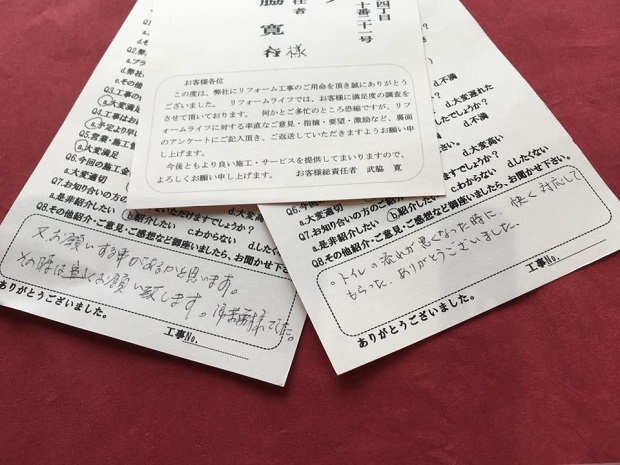 四丁目
十番二十一号
任者
脇 寛
行様
お客様各位
この度は、弊社にリフォーム工事のご用命を頂き誠にありがとう
ございました。 リフォームライフでは、お客様に満足度の調査を
させて頂いております。 何かとご多忙のところ恐縮ですが、リフ
ォームライフに対する率直なご意見・指摘・要望・激励など、裏面
のアンケートにご記入頂き、ご返送していただきますようお願い申
し上げます。
今後ともより良い施工・サービスを提供してまいりますので、
よろしくお願い申し上げます。 お客様総責任者 武脇 寛
a.そ
Q2.弊
a.プラ
d.弊社
e.その他
Q3.工事の
a.大変満足
Q4.工事はお
a.予定より早
Q5.営業・施工
a.大変満足
Q6.今回の施工金
a.大変適切
Q7.お知り合いの方の
a.是非紹介したい b.紹介したい c.わからない d.したく
Q8.その他紹介・ご意見・ご感想など御座いましたら、お聞かせ下
又お願いする事があるかと思います。
その時は宜しくお願い致します。
ありがとうございました。 工事No.
d.不満
d.大変遅れた
でしょうか?
d.不満
か?
d.大変高い
Q6.今
a.大変適切
Q7.お知り合いの方の
でしょうか?
a.是非紹介したい b.紹介し c.わからない d.したくない
Q8.その他紹介・ご意見・ご感想など御座いましたら、お聞かせ下さい。
。トイレの流れが悪くなった時に、快く対応して
もらった、ありがとうございました。
ありがとうございました。 工事No.